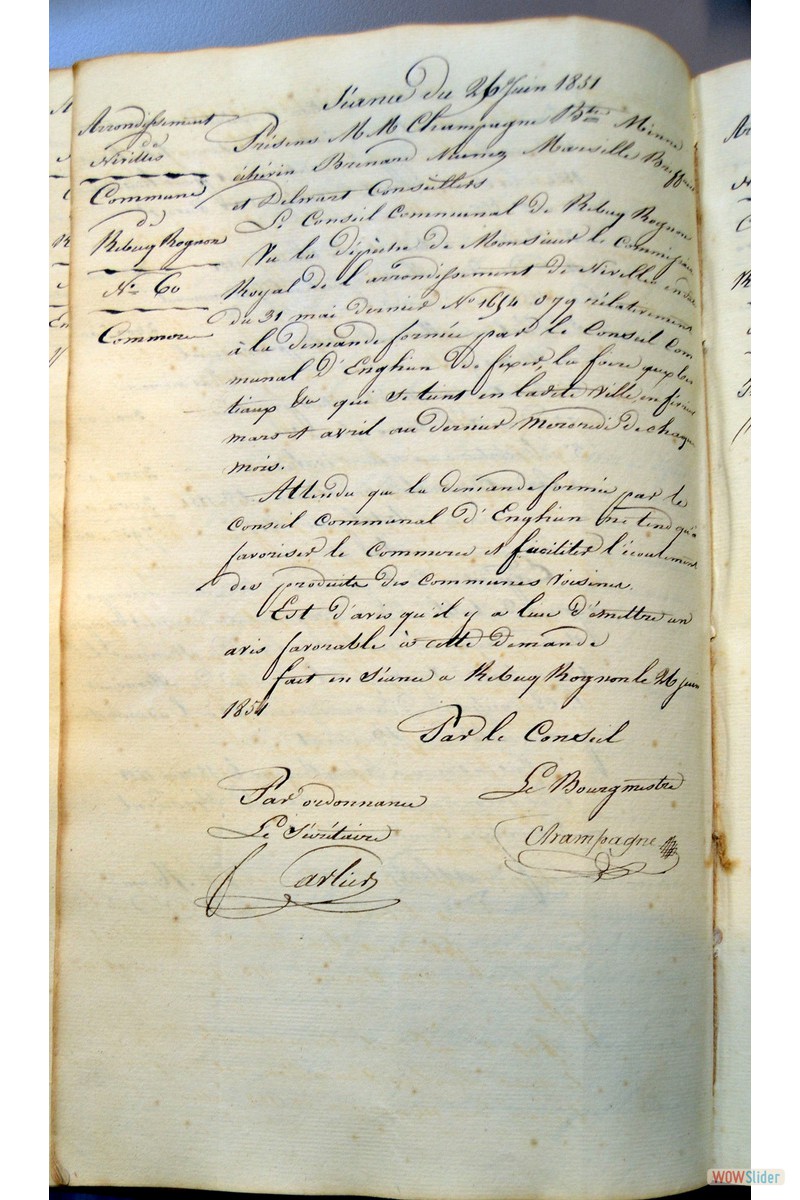 Séance du 26 Juin 1851
Arrondissement
de
Nivelles
Commune
de
Rebecq Rognon
N° 60
Commerce
Présens M M Champagne Bte Minne
Brenard Marcelle
et Delwart Conseillers
Le Conseil Communal de Rebecq Rognon
Vu la dépêche de Monsieur le Commissaire
Royal de l'arrondissement de Nivelles en date
du 31 mai dernier N° 1654 079 rélativement
à la demande formée par le Conseil Com
munal d'Enghien de fixer, la foire aux bes
tiaux qui se tient en ladite Ville, en février
mars et avril au dernier Mercredi de chaque
mois.
Attendu que la demande formée par le
Conseil Communal d'Enghien ne tend qu'à
favoriser le Commerce et faciliter l'écoulement
des produits des Communes Voisines.
Est d'avis qu'il y a lieu d'émettre un
avis favorable à cette demande
fait en Séance a Rebecq Rognon le 26 juin
1851
Par le Conseil
Par ordonnance
Le Sécrétaire
Carlier
Le Bourgmestre
Champagne
WOWSlider